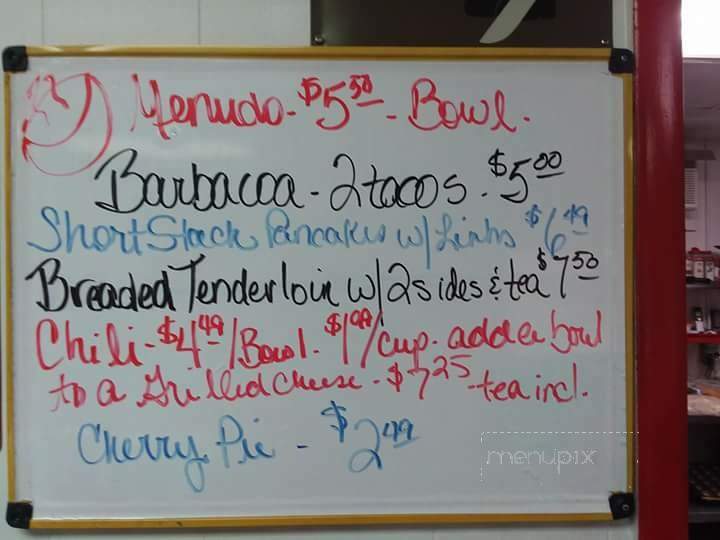 Menudo - $5.50 - Bowl.
Barbacoa - 2 tacos - $5.00
Short Stack Pancakes w/ Links $6.49
Breaded Tenderloin w/ 2 sides & tea $7.50
Chili - $4.49 / Bowl. $1.99 / cup. add a bowl
to a Grilled Cheese - $7.25 - tea incl.
Cherry Pie - $2.49
menupix